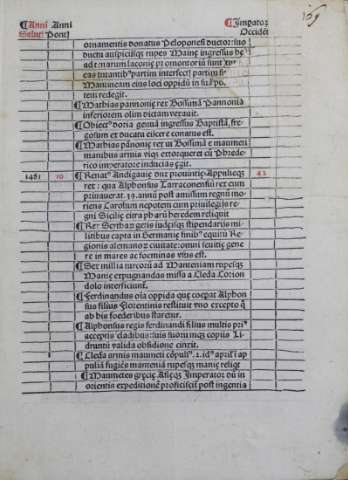 ¶Anni Anni ¶Impator
Salut' Pont' Occidēt 169
ornamentis donatus Peloponesi ductor: suo
ductu auspicijsqȝ rupes Mayne ingressus
ad tenarum laconię promontorium
partim interfect' partim
Manineam eius loci oppidū in sua po
tem redegit.
¶Mathias pannonię rex Bossinā Pannonia
inferiorem olim dictam vexauit.
¶Obiect' doria genuā ingressus Baptistā, fre
gosum ex ducatu eiicere conatus est.
¶Mathias pānonię rex in Bossinā e maumeti
manibus armis viqȝ extorquere cū Phrede
rico imperatore inducias egit.
1481 10 ¶Renat' Andigauię dux prouintię Appulieqȝ 42
rex: qua Alphonsus Tarraconensiū rex eum
priuauerat. 39. anno post amissum regnū mo
riens Carolum nepotem cum priuilegijs re
gni Sicilię citra pharū heredem reliquit
¶Rex Scithar getis iudęisqȝ stipendiarijs mi
litibus capta in Germanię finib' equitū Re
gionis alemanor' ciuitate: omni sexu gene
re in mares ac foeminas vsus est.
¶Sex millia turcorū ad Manteniam rupesqȝ
Manię expugnandas missa a Cleda Corion
dolo interficiunt.
¶Ferdinandus oīa oppida quę coeptat Alphon
sus filius Florentinis restituit vno excepto q
ab his foederibus staretur.
¶Alphonsus regis ferdinandi filius multis pri'
acceptis cladibus: suis suorumqȝ copijs Li
druntū valida obsidione cinxit.
¶Cleda armis maumeti cōpuls' .2. id' april' ī ap
puliā fugiēs manteniā rupesqȝ manię reliqt
¶Maumetes gręcię Asięqȝ Imperator dū in
orientis expeditionē proficiscit' post ingentia